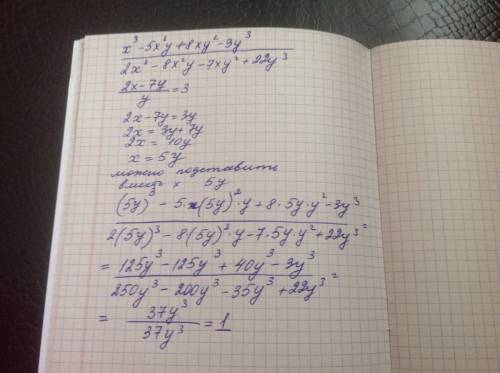 x³-5x²y+8xy²-3y³
2x³-8x²y-7xy²+22y³
2x-7y
y
=3
2x-7y=3y
2x=3y+7y
2x= 10y
x=5y
можно подставить
вместо x 5y
(5y)³ - 5·(5y)²·y+8·5y·y²-3y³
2(5y)³-8(5y)²·y-7·5y·y²+22y³ =
= 125y³-125y³+40y³-3y³
250y³-200y³-35y³+22y³ =
= 37y³
37y³
=1